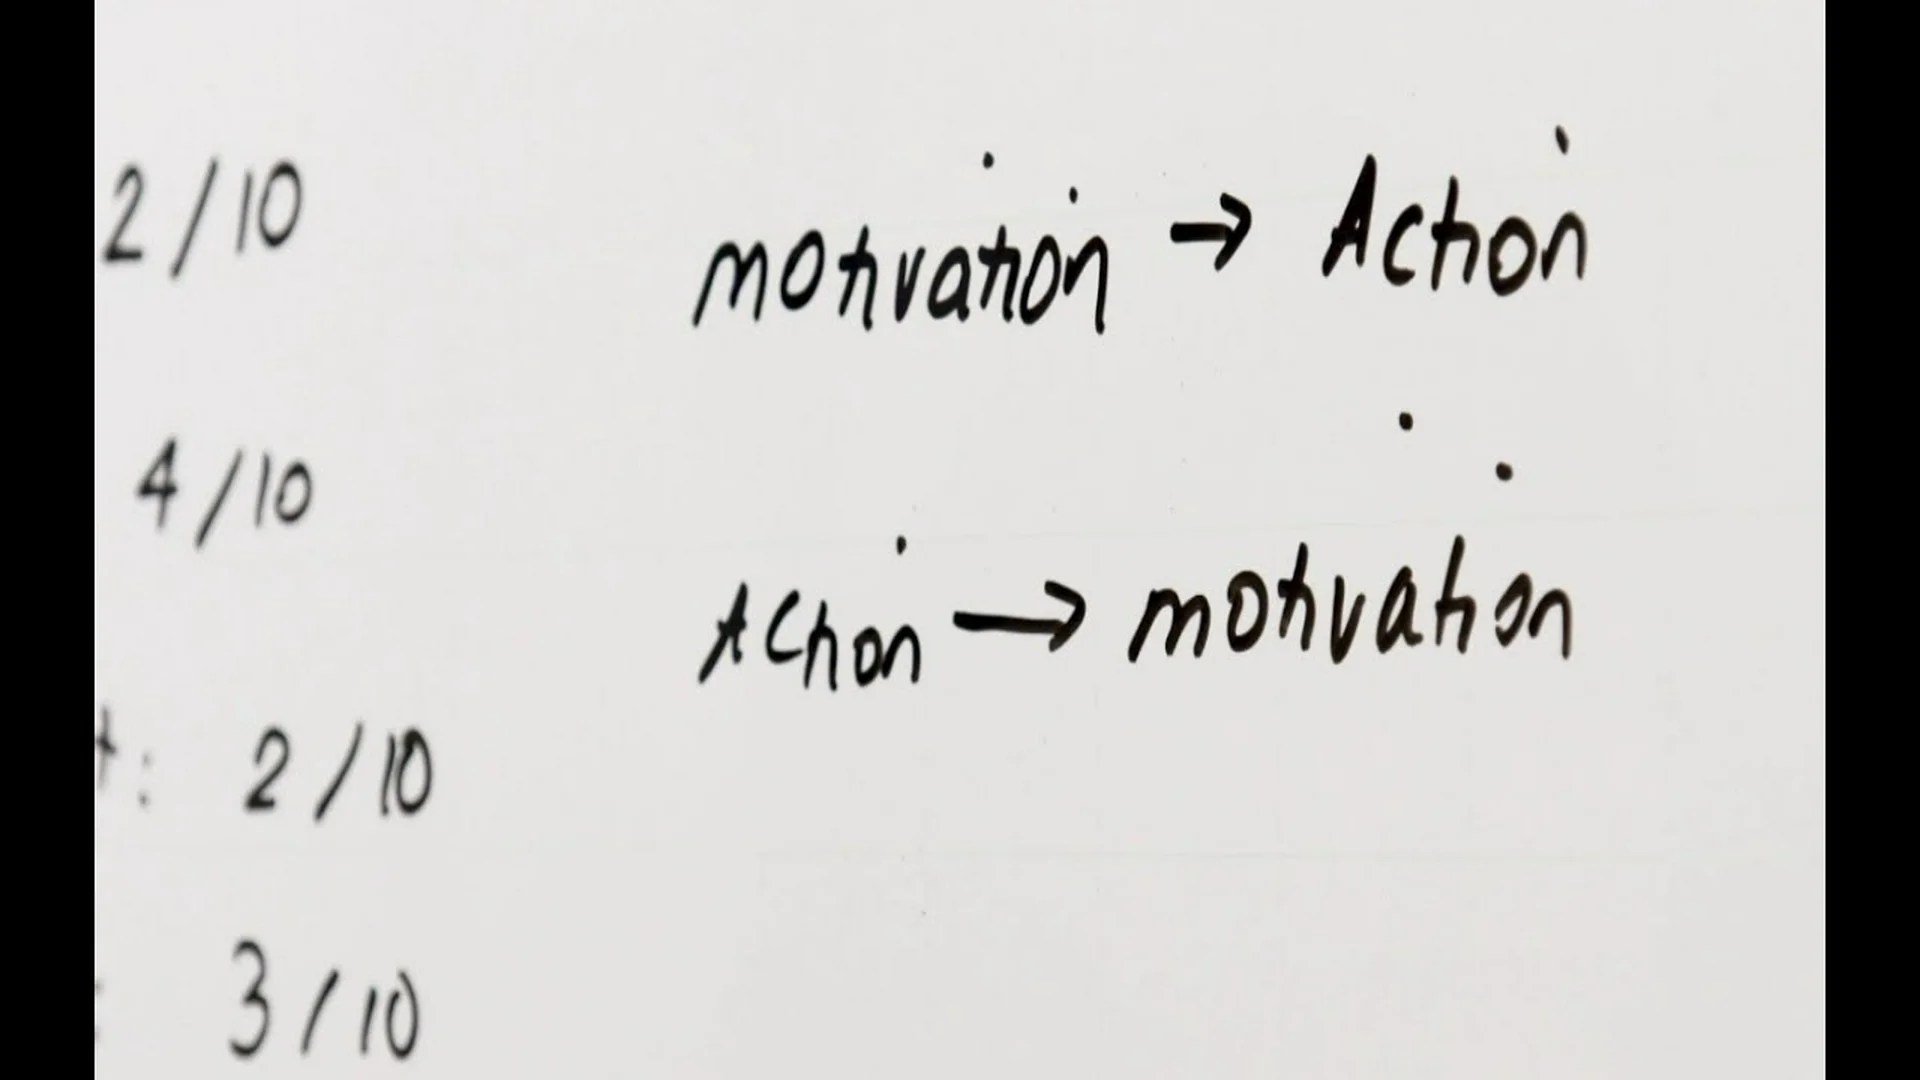 2/10
motivation → Action
4/10
Action → motivation
t: 2/10
: 3/10